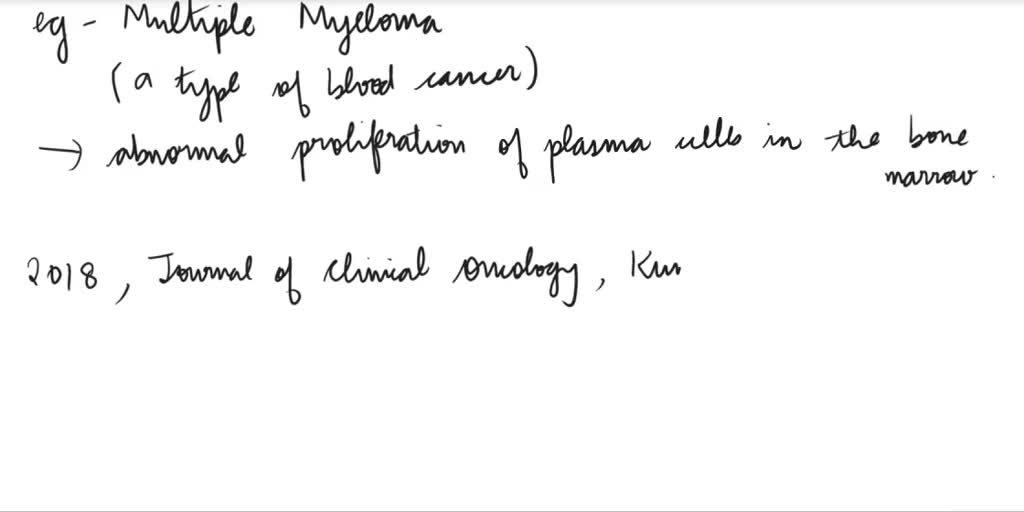 eg - Multiple Myeloma
(a type of blood cancer)
→ abnormal proliferation of plasma cells in the bone
marrow.
2018, Journal of Clinical Oncology,